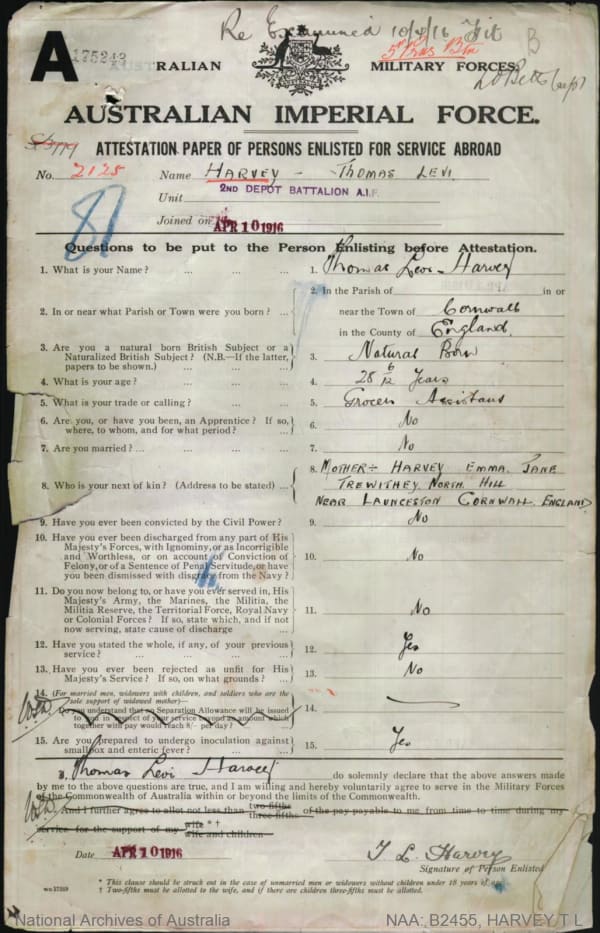 Re Examined 10/4/16 Fit
B
A
175243
AUSTRALIAN MILITARY FORCES.
AUSTRALIAN IMPERIAL FORCE.
ATTESTATION PAPER OF PERSONS ENLISTED FOR SERVICE ABROAD
No. 2125 Name HARVEY - THOMAS LEVI.
Unit 2ND DEPOT BATTALION A.I.F.
Joined on APR 10 1916
Questions to be put to the Person Enlisting before Attestation.
1. What is your Name? ... ... ... 1. Thomas Levi Harvey
2. In or near what Parish or Town were you born? ... 2. In the Parish of in or
near the Town of Cornwall
in the County of England.
3. Are you a natural born British Subject or a
Naturalized British Subject? (N.B.—If the latter,
papers to be shown.) ... ... ... 3. Natural Born
4. What is your age? ... ... ... 4. 28 6/12 Years
5. What is your trade or calling? ... ... ... 5. Grocers Assistant
6. Are you, or have you been, an Apprentice? If so,
where, to whom, and for what period? ... ... 6. No
7. Are you married? ... ... ... ... 7. No
8. Who is your next of kin? (Address to be stated) ... 8. MOTHER÷ HARVEY EMMA JANE
TREWITHEY NORTH HILL
NEAR LAUNCESTON CORNWALL ENGLAND
9. Have you ever been convicted by the Civil Power? 9. No
10. Have you ever been discharged from any part of His
Majesty's Forces, with Ignominy, or as Incorrigible
and Worthless, or on account of Conviction of
Felony, or of a Sentence of Penal Servitude, or have
you been dismissed with disgrace from the Navy? 10. No
11. Do you now belong to, or have you ever served in, His
Majesty's Army, the Marines, the Militia, the
Militia Reserve, the Territorial Force, Royal Navy
or Colonial Forces? If so, state which, and if not
now serving, state cause of discharge ... 11. No
12. Have you stated the whole, if any, of your previous
service? ... ... ... ... 12. Yes
13. Have you ever been rejected as unfit for His
Majesty's Service? If so, on what grounds? ... 13. No
14. (For married men, widowers with children, and soldiers who are the
sole support of widowed mother)—
Do you understand that no Separation Allowance will be issued
to you in respect of your service beyond an amount which
together with pay would reach 8/- per day? ... 14.
15. Are you prepared to undergo inoculation against
smallpox and enteric fever? ... ... 15. Yes
I, Thomas Levi Harvey do solemnly declare that the above answers made
by me to the above questions are true, and I am willing and hereby voluntarily agree to serve in the Military Forces
of the Commonwealth of Australia within or beyond the limits of the Commonwealth.
And I further agree to allot not less than two-fifths three-fifths of the pay payable to me from time to time during my
service for the support of my wife *† wife and children
Date APR 10 1916 T L Harvey
Signature of Person Enlisted
* This clause should be struck out in the case of unmarried men or widowers without children under 18 years of age.
† Two-fifths must be allotted to the wife, and if there are children three-fifths must be allotted.
National Archives of Australia NAA: B2455, HARVEY T L